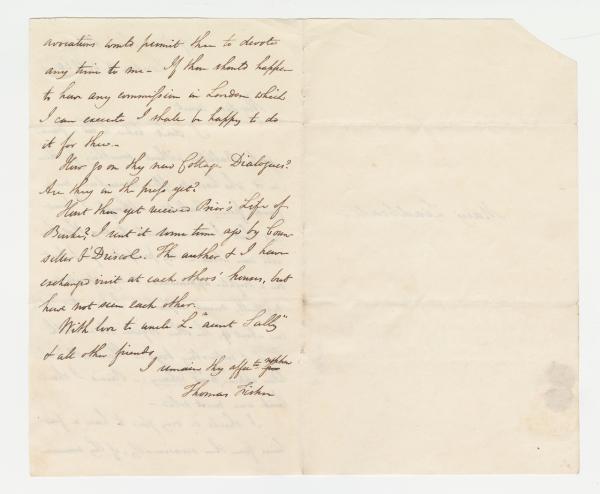 avocations would permit thee to devote
any time to me – If thou should happen
to have any commission in London which
I can execute I shall be happy to do
it for thee –
How go on thy new Cottage Dialogues?
Are they in the press yet?
Hast thou yet received Prior's Life of
Burke? I sent it some time ago by Coun-
sellor O'Driscol. The author & I have
exchanged visits at each others' houses, but
have not seen each other.
With love to uncle L. "aunt Sally"
& all other friends
I remain thy affec.te nephew
Thomas Fisher